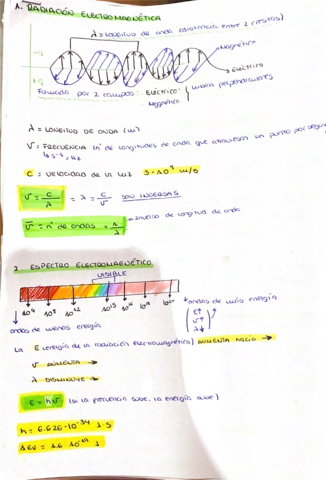 1. RADIACIÓN ELECTROMAGNÉTICA
λ = LONGITUD DE ONDA (distancia entre 2 crestas)
Magnético
Eléctrico
Formada por 2 campos: Eléctrico
Magnético
vibran perpendiculares
λ = LONGITUD DE ONDA (m)
ν = FRECUENCIA (nº de longitudes de onda que atraviesan un punto por segun
s⁻¹ = Hz
C = VELOCIDAD DE LA LUZ 3·10⁸ m/s
ν = C/λ = λ = C/ν SON INVERSAS
ν̅ = nº de ondas = 1/λ → inverso de longitud de onda
2. ESPECTRO ELECTROMAGNÉTICO
VISIBLE
10⁴ 10⁸ 10¹² 10¹⁵ 10¹⁶
ondas de más energía
E↑
ν↑
λ↓
ondas de menos energía
La E (energía de la radiación electromagnética) AUMENTA HACIA →
ν AUMENTA →
λ DISMINUYE →
E = hν (si la frecuencia sube, la energía sube)
h = 6.626·10⁻³⁴ J·S
1 eV = 1.6·10⁻¹⁹ J